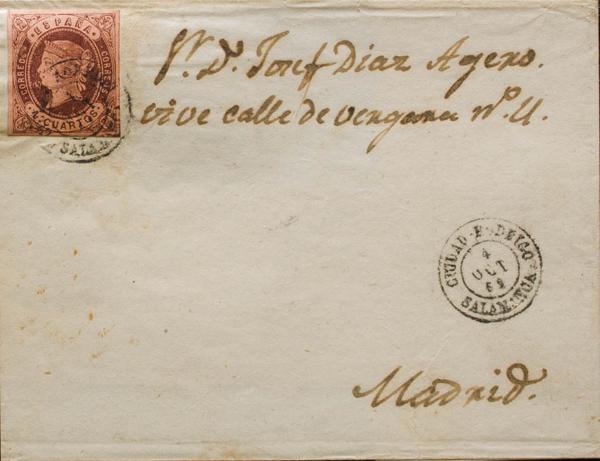 CORREOS
ESPAÑA
CORREOS
4 CUARTOS
SALAM
Sr. Dn. Josef Diaz Agero.
vive calle de vergara nº. 11.
CIUDAD-R-DRIGO
4
OCT
62
SALAMANCA
Madrid.